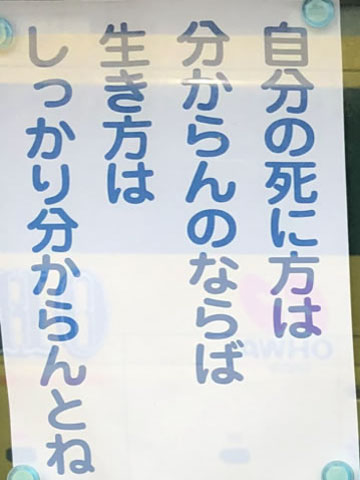 自分の死に方は
分からんのならば
生き方は
しっかり分からんとね